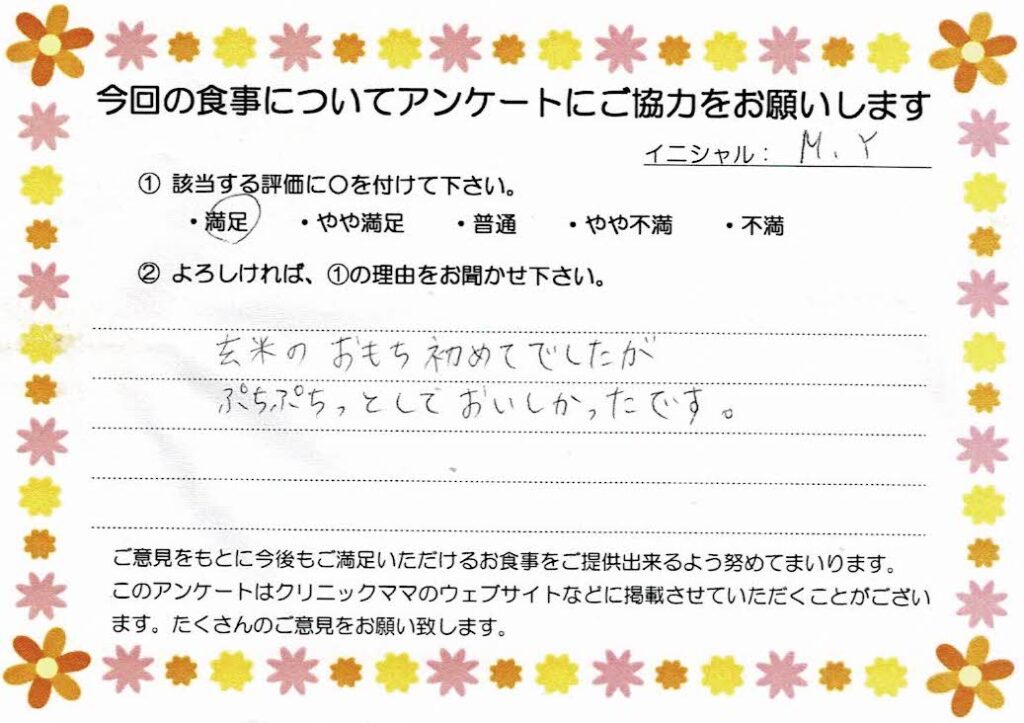 今回の食事についてアンケートにご協力をお願いします
イニシャル： M.Y
① 該当する評価に〇を付けて下さい。
・満足 ・やや満足 ・普通 ・やや不満 ・不満
② よろしければ、①の理由をお聞かせ下さい。
玄米のおもち初めてでしたが
ぷちぷちっとしておいしかったです。
ご意見をもとに今後もご満足いただけるお食事をご提供出来るよう努めてまいります。
このアンケートはクリニックママのウェブサイトなどに掲載させていただくことがござい
ます。たくさんのご意見をお願い致します。